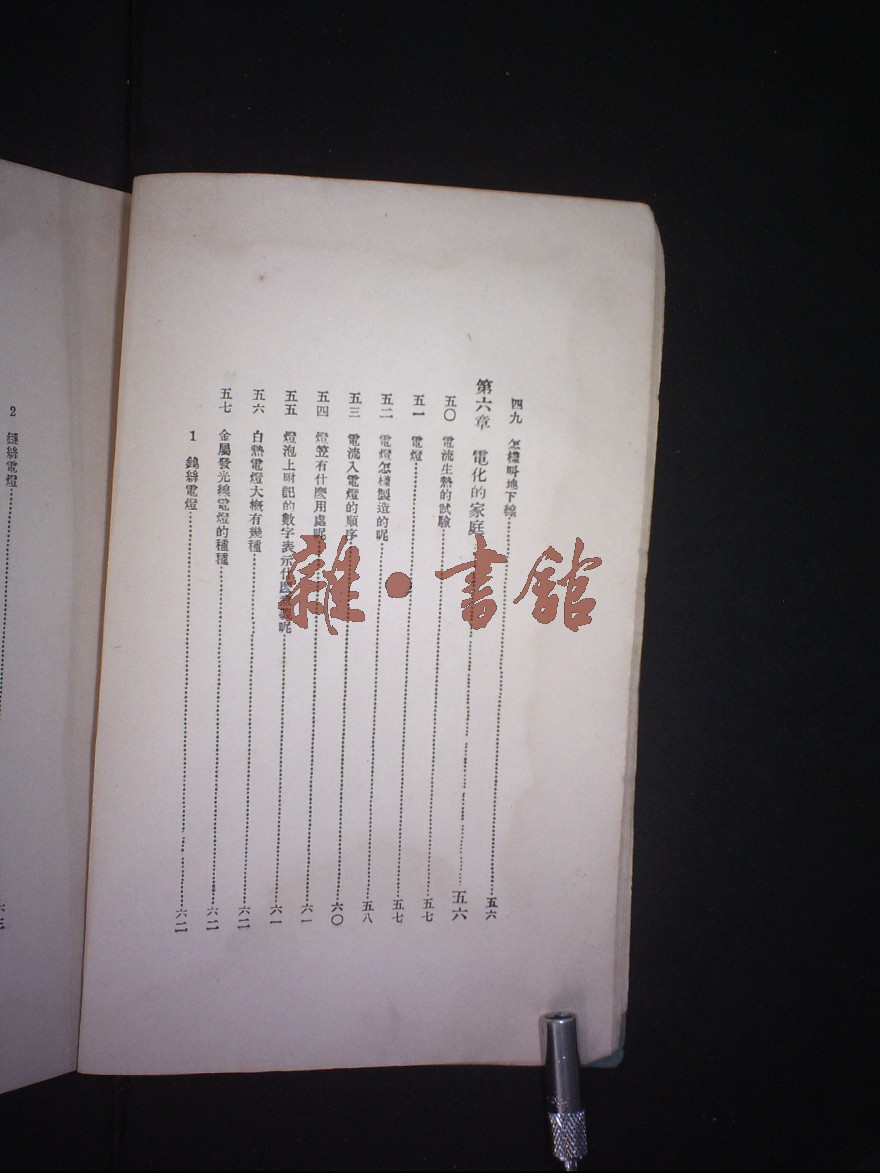 四九 怎樣叫地下線 五六
第六章 電化的家庭 五六
五〇 電流生熱的試驗 五七
五一 電燈 五七
五二 電燈怎樣製造的呢 五八
五三 電流入電燈的順序 六〇
五四 燈笠有什麼用處呢 六一
五五 燈泡上附記的數字表示什麼意義呢 六一
五六 白熱電燈大槪有幾種 六二
五七 金屬發光線電燈的種種 六二
1 鎢絲電燈 六二
2 絲電燈 六三
雜·書館